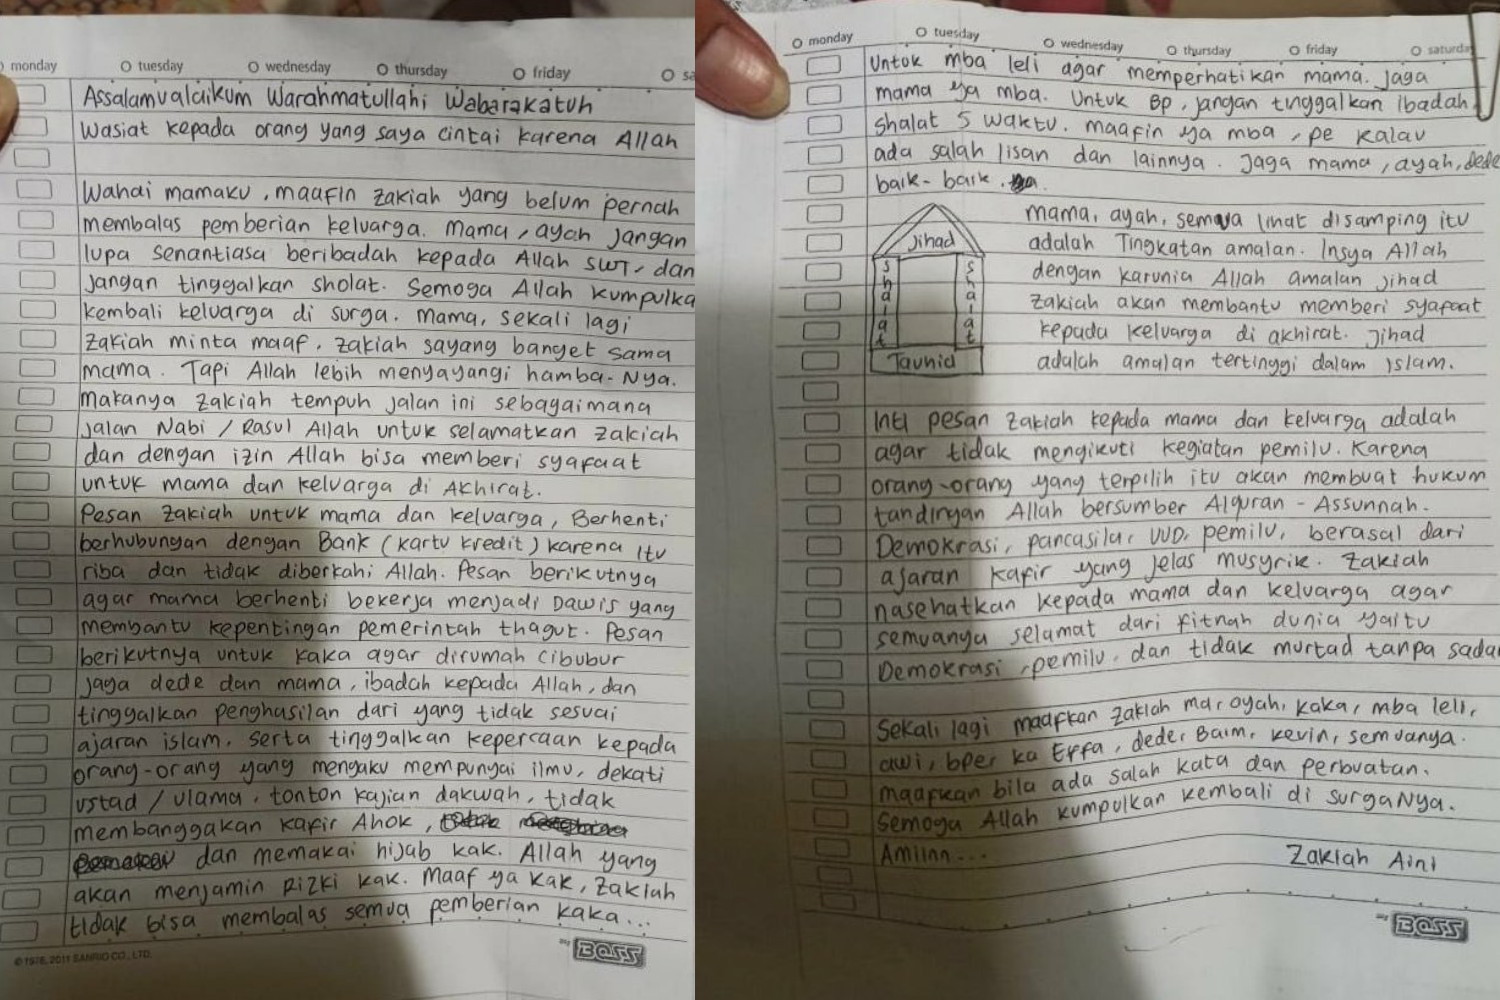 monday tuesday wednesday thursday friday sa
Assalamualaikum Warahmatullahi Wabarakatuh
Wasiat kepada orang yang saya cintai karena Allah
Wahai mamaku, maafin zakiah yang belum pernah
membalas pemberian keluarga. Mama, ayah jangan
lupa senantiasa beribadah kepada Allah SWT, dan
jangan tinggalkan sholat. Semoga Allah kumpulka
kembali keluarga di surga. Mama, sekali lagi
zakiah minta maaf, zakiah sayang banget sama
mama. Tapi Allah lebih menyayangi hamba-Nya.
Makanya zakiah tempuh jalan ini sebagaimana
jalan Nabi / Rasul Allah untuk selamatkan zakiah
dan dengan izin Allah bisa memberi syafaat
untuk mama dan keluarga di Akhirat.
Pesan zakiah untuk mama dan keluarga, Berhenti
berhubungan dengan Bank (kartu kredit) karena itu
riba dan tidak diberkahi Allah. Pesan berikutnya
agar mama berhenti bekerja menjadi Dawis yang
membantu kepentingan pemerintah thagut. Pesan
berikutnya untuk kaka agar dirumah cibubur
jaga dede dan mama, ibadah kepada Allah, dan
tinggalkan penghasilan dari yang tidak sesuai
ajaran islam, serta tinggalkan kepercaan kepada
orang-orang yang mengaku mempunyai ilmu, dekati
ustad / ulama, tonton kajian dakwah, tidak
membanggakan kafir Ahok,
dan memakai hijab kak. Allah yang
akan menjamin rizki kak. Maaf ya kak, zakiah
tidak bisa membalas semua pemberian kaka...
© 1976, 2011 SANRIO CO., LTD.
my BOSS
monday tuesday wednesday thursday friday saturday
Untuk mba leli agar memperhatikan mama. Jaga
mama ya mba. Untuk Bp, jangan tinggalkan ibadah
shalat 5 waktu. maafin ya mba, pe kalau
ada salah lisan dan lainnya. Jaga mama, ayah, dede
baik-baik.
mama, ayah, semua lihat disamping itu
adalah Tingkatan amalan. Insya Allah
dengan karunia Allah amalan jihad
zakiah akan membantu memberi syafaat
kepada keluarga di akhirat. Jihad
adalah amalan tertinggi dalam islam.
Jihad
shalat
shalat
Tauhid
Inti pesan zakiah kepada mama dan keluarga adalah
agar tidak mengikuti kegiatan pemilu. Karena
orang-orang yang terpilih itu akan membuat hukum
tandingan Allah bersumber Alquran - Assunnah.
Demokrasi, pancasila, UUD, pemilu, berasal dari
ajaran kafir yang jelas musyrik. Zakiah
nasehatkan kepada mama dan keluarga agar
semuanya selamat dari fitnah dunia yaitu
Demokrasi, pemilu, dan tidak murtad tanpa sadar
Sekali lagi maafkan zakiah ma, oyah, kaka, mba leli,
awi, bper ka Effa, dede, Baim, kevin, semuanya.
maafkan bila ada salah kata dan perbuatan.
Semoga Allah kumpulkan kembali di surgaNya.
Amiinn...
Zakiah Aini
my BOSS